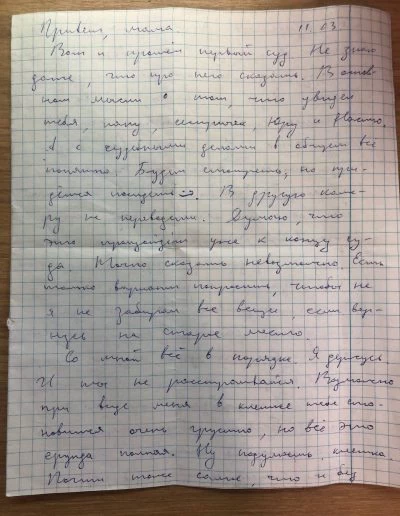 Привет, мама. 11.03.
Вот и прошёл первый суд. Не знаю
даже, что про него сказать. В основ-
ном мысли о том, что увидел
тебя, папу, сестричек, Юру и Настю.
А с судебными делами в общем всё
понятно. Будем смотреть, но
В другую каме-
ру не переведены. Думаю, что
это произойдёт уже к концу су-
да. Точно сказать невозможно. Есть
только вариант попросить, чтобы не
я не забирал все вещи, если вер-
нусь на старое место.
Со мной всё в порядке. Я держусь
И ты не расстраивайся. Возможно
при виде меня в клетке тебе ста-
новится очень грустно, но всё это
ерунда полная. Ну подумаешь клетка.
Почти тоже самое, что и без